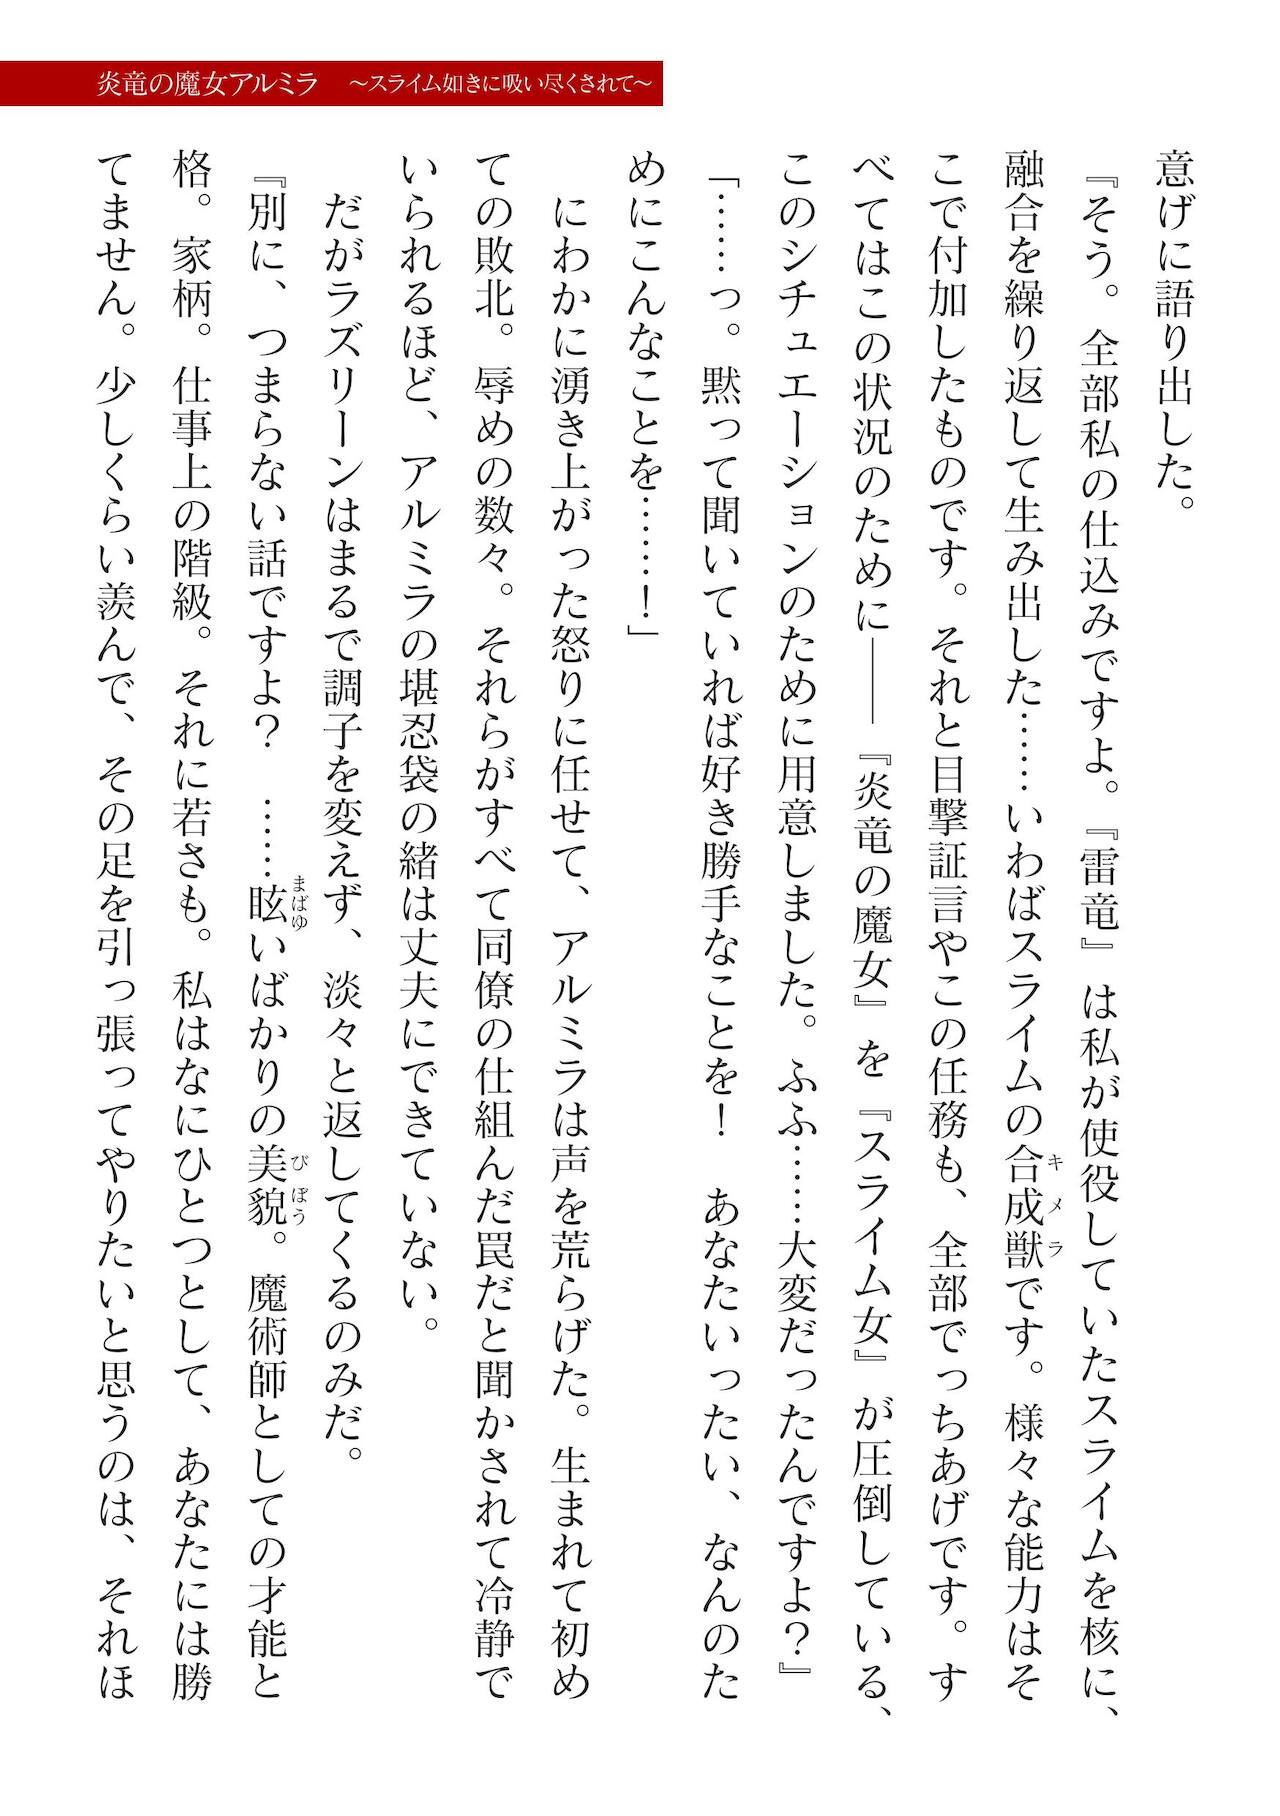 炎竜の魔女アルミラ　～スライム如きに吸い尽くされて～
意げに語り出した。
『そう。全部私の仕込みですよ。『雷竜』は私が使役していたスライムを核に、
融合を繰り返して生み出した……いわばスライムの合成獣キメラです。様々な能力はそ
こで付加したものです。それと目撃証言やこの任務も、全部でっちあげです。す
べてはこの状況のために――『炎竜の魔女』を『スライム女』が圧倒している、
このシチュエーションのために用意しました。ふふ……大変だったんですよ？』
「……っ。黙って聞いていれば好き勝手なことを！　あなたいったい、なんのた
めにこんなことを……！」
　にわかに湧き上がった怒りに任せて、アルミラは声を荒らげた。生まれて初め
ての敗北。辱めの数々。それらがすべて同僚の仕組んだ罠だと聞かされて冷静で
いられるほど、アルミラの堪忍袋の緒は丈夫にできていない。
　だがラズリーンはまるで調子を変えず、淡々と返してくるのみだ。
『別に、つまらない話ですよ？　……眩まばゆいばかりの美貌びぼう。魔術師としての才能と
格。家柄。仕事上の階級。それに若さも。私はなにひとつとして、あなたには勝
てません。少しくらい羨んで、その足を引っ張ってやりたいと思うのは、それほ